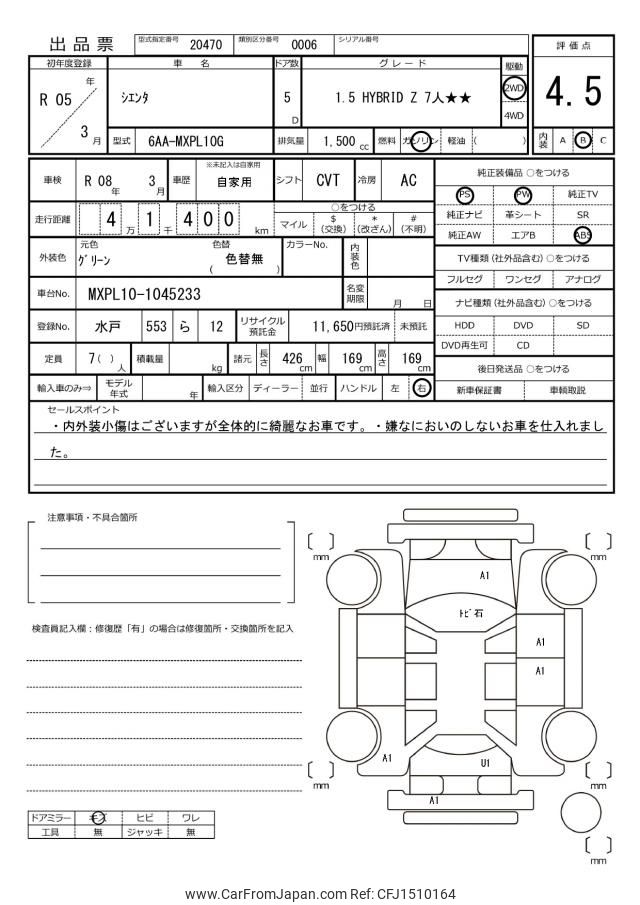 出品票 型式指定番号 20470 類別区分番号 0006 シリアル番号
評価点
4.5
内装 A B C
初年度登録 車名 ドア数 グレード 駆動
R 05 年 3 月
シエンタ 5 D 1.5 HYBRID Z 7人★★ 2WD 4WD
型式 6AA-MXPL10G 排気量 1,500 cc 燃料 ガソリン 軽油 ( )
車検 R 08 年 3 月 車歴 ※未記入は自家用 自家用 シフト CVT 冷房 AC
走行距離 4 万 1 千 4 0 0 km
○をつける
マイル $ (交換) * (改ざん) # (不明)
外装色 元色 グリーン 色替 ( 色替無 ) カラーNo. 内装色
車台No. MXPL10-1045233 名変期限 月 日
登録No. 水戸 553 ら 12 リサイクル預託金 11,650円預託済 未預託
定員 7( ) 人 積載量 kg 諸元 長さ 426 cm 幅 169 cm 高さ 169 cm
輸入車のみ⇒ モデル年式 年 輸入区分 ディーラー 並行 ハンドル 左 右
純正装備品 ○をつける
PS PW 純正TV
純正ナビ 革シート SR
純正AW エアB ABS
TV種類 (社外品含む) ○をつける
フルセグ ワンセグ アナログ
ナビ種類 (社外品含む) ○をつける
HDD DVD SD
DVD再生可 CD
後日発送品 ○をつける
新車保証書 車輌取説
セールスポイント
・内外装小傷はございますが全体的に綺麗なお車です。・嫌なにおいのしないお車を仕入れまし
た。
注意事項・不具合箇所
検査員記入欄：修復歴「有」の場合は修復箇所・交換箇所を記入
mm
mm
A1
トビ石
A1
A1
A1
U1
A1
mm
mm
mm
ドアミラー キズ ヒビ ワレ
工具 無 ジャッキ 無
www.CarFromJapan.com Ref: CFJ1510164